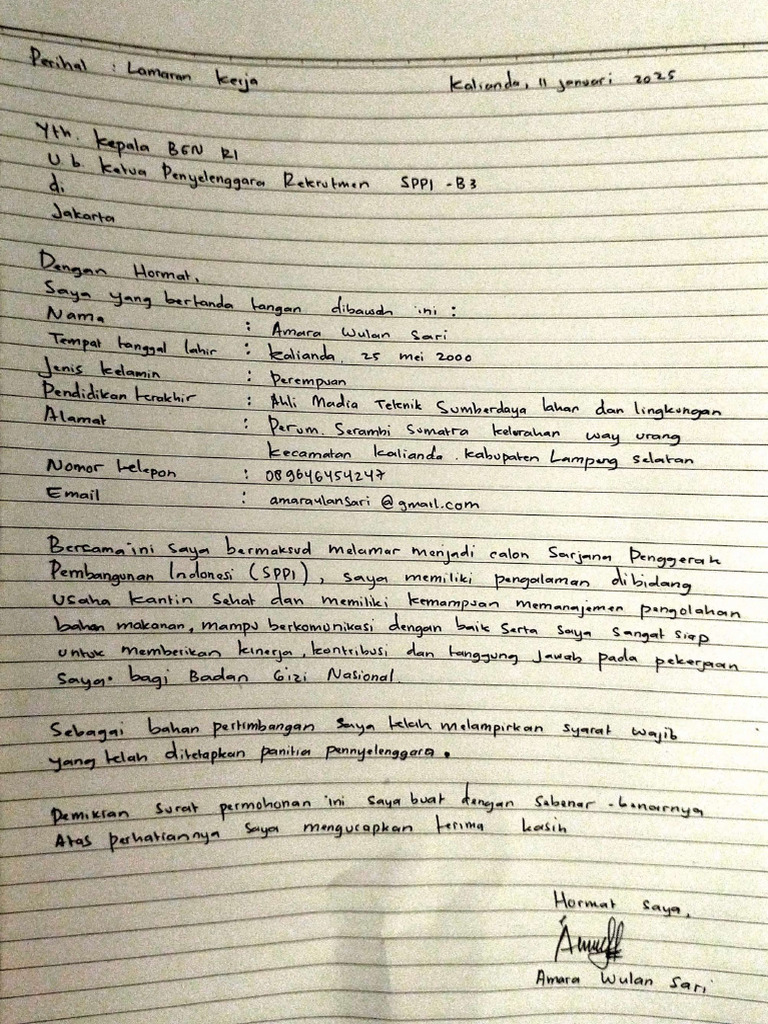 Perihal : Lamaran Kerja
Kalianda, 11 januari 2025
Yth. Kepala BGN RI
U b. Ketua Penyelenggara Rekrutmen SPPI -B3
di
Jakarta
Dengan Hormat,
Saya yang bertanda tangan dibawah ini :
Nama : Amara Wulan Sari
Tempat tanggal lahir : Kalianda, 25 mei 2000
Jenis Kelamin : Perempuan
Pendidikan terakhir : Ahli Madia Teknik Sumberdaya lahan dan lingkungan
Alamat : Perum. Serambi Sumatra kelurahan way urang
kecamatan kalianda. Kabupaten Lampung selatan
Nomor telepon : 089646454247
Email : amarawlansari @gmail.com
Bersama ini saya bermaksud melamar menjadi calon Sarjana Penggerak
Pembangunan Indonesi (SPPI), saya memiliki pengalaman dibidang
usaha kantin sehat dan memiliki kemampuan memanajemen pengolahan
bahan makanan, mampu berkomunikasi dengan baik serta saya sangat siap
untuk memberikan kinerja, kontribusi dan tanggung jawab pada pekerjaan
saya. bagi Badan Gizi Nasional.
Sebagai bahan pertimbangan saya telah melampirkan syarat wajib
yang telah ditetapkan panitia pennyelenggara.
Demikian surat permohonan ini saya buat dengan sebenar -benarnya
Atas perhatiannya saya mengucapkan terima kasih
Hormat saya,
Amara Wulan Sari